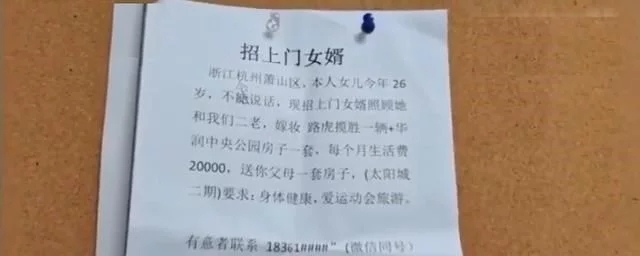 招上门女婿
浙江杭州萧山区、本人女儿今年26
岁，不能说话，现招上门女婿照顾她
和我们二老，嫁妆 路虎揽胜一辆+华
润中央公园房子一套，每个月生活费
20000，送你父母一套房子，(太阳城
二期)要求：身体健康，爱运动会旅游。
有意者联系 18361####"(微信同号)